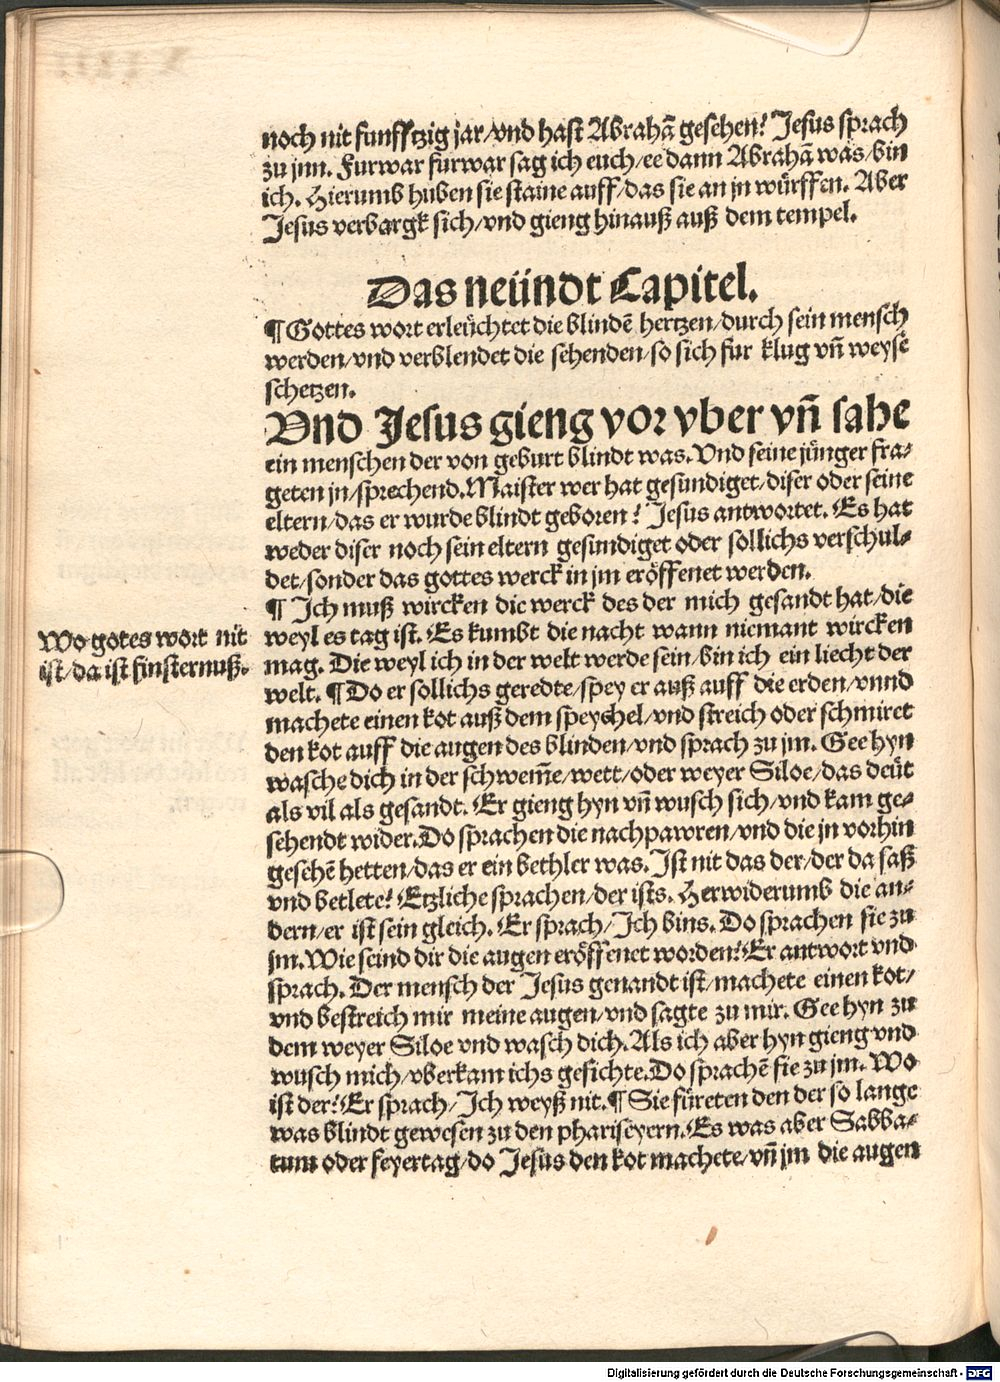 noch nit funfftzig jar/vnd hast Abrahā gesehen? Jesus sprach
zu jnn. Furwar fürwar sag ich euch/ee dann Abrahā was/bin
ich. Hierumb huben sie staine auff/das sie an jn würffen. Aber
Jesus verbargk sich/vnd gieng hinauß auß dem tempel.
Das neündt Capitel.
¶ Gottes wort erleüchtet die blindē hertzen/durch sein mensch
werden/vnd verblendet die sehenden/so sich fur klug vn̄ weyse
schetzen.
Vnd Jesus gieng vor vber vn̄ sahe
ein menschen der von geburt blindt was. Vnd seine jünger fra-
geten jn/sprechend. Maister wer hat gesundiget/diser oder seine
eltern/das er wurde blindt geboren? Jesus antwortet. Es hat
weder diser noch sein eltern gesundiget oder sollichs verschul-
det/sonder das gottes werck in jm eröffenet werden.
¶ Ich muß wircken die werck des der mich gesandt hat/die
weyl es tag ist. Es kumbt die nacht wann niemant wircken
mag. Die weyl ich in der welt werde sein/bin ich ein liecht der
welt. ¶ Do er sollichs geredte/spey er auß auff die erden/vnnd
machete einen kot auß dem speychel/vnd streich oder schmiret
den kot auff die augen des blinden/vnd sprach zu jm. Gee hyn
wasche dich in der schwem̄e/wett/oder weyer Siloe/das deüt
als vil als gesandt. Er gieng hyn vn̄ wusch sich/vnd kam ge-
sehendt wider. Do sprachen die nachpawren/vnd die jn vorhin
gesehē hetten/das er ein bethler was. Ist nit das der/der da saß
vnd betlete? Etzliche sprachen/der ists. Herwiderumb die an-
dern/er ist sein gleich. Er sprach/Ich bins. Do sprachen sie zu
jm. Wie seind dir die augen eröffenet worden? Er antwort vnd
sprach. Der mensch der Jesus genandt ist/machete einen kot/
vnd bestreich mir meine augen/vnd sagte zu mir. Gee hyn zu
dem weyer Siloe vnd wasch dich. Als ich aber hyn gieng vnd
wusch mich/vberkam ichs gesichte. Do sprachē sie zu jm. Wo
ist der? Er sprach/Ich weyß nit. ¶ Sie füreten den der so lange
was blindt gewesen zu den phariseyern. Es was aber Sabba-
tum oder feyertag/do Jesus den kot machete/vn̄ jm die augen
Wo gotes wort nit
ist/da ist finsternuß.
Digitalisierung gefördert durch die Deutsche Forschungsgemeinschaft - DFG